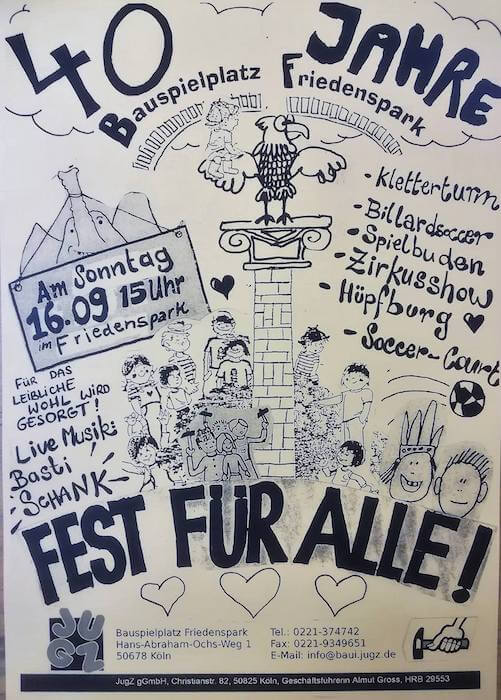 40 JAHRE
Bauspielplatz Friedenspark
Am Sonntag
16.09 15 Uhr
im Friedenspark
- Kletterturm
- Billardsoccer
- Spielbuden
- Zirkusshow
- Hüpfburg
- Soccer-Court
FÜR DAS
LEIBLICHE
WOHL WIRD
GESORGT!
Live Musik:
Basti
SCHANK
FEST FÜR ALLE!
JUGZ
Bauspielplatz Friedenspark
Hans-Abraham-Ochs-Weg 1
50678 Köln
Tel.: 0221-374742
Fax: 0221-9349651
E-Mail: info@baui.jugz.de
JugZ gGmbH, Christianstr. 82, 50825 Köln, Geschäftsführerin Almut Gross, HRB 29553